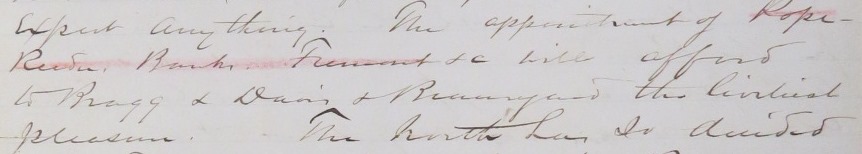 Expect anything. The appointment of Pope-
Banks Fremont &c will afford
to Bragg & Davis & Beauregard the liveliest
pleasure. The North has so decided